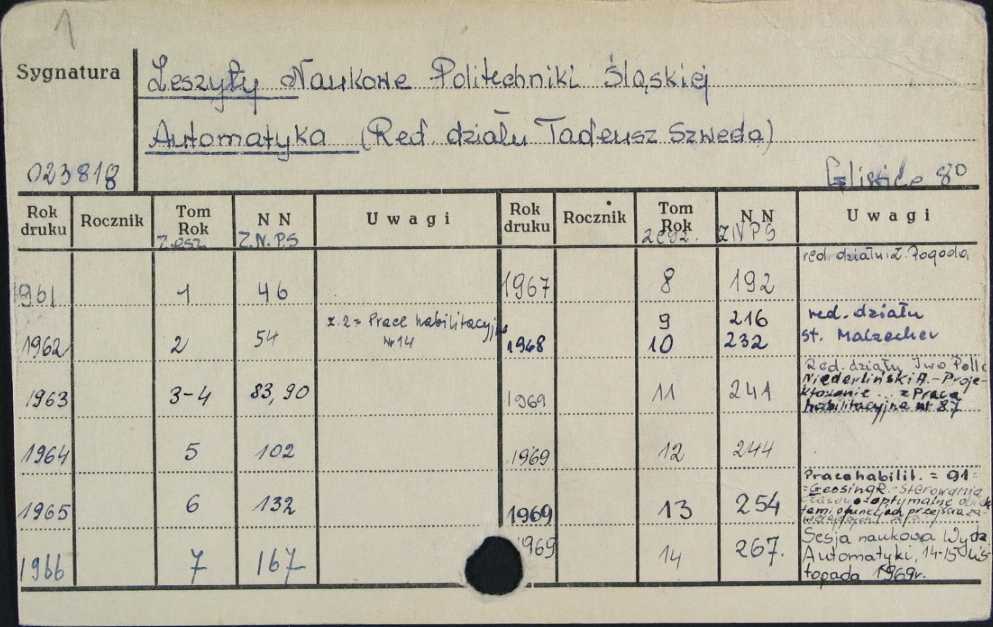 1
Sygnatura
Zeszyty Naukowe Politechniki Śląskiej
Automatyka (Red. działu Tadeusz Szweda)
023818
Gliwice 8°
Rok druku Rocznik Tom Rok Zesz. N N Z.N.PS Uwagi Rok druku Rocznik Tom Rok zesz. N N ZNPS Uwagi
1961 1 46 1967 8 192 red. działu Z. Pogoda
1962 2 54 z. 2 = Prace habilitacyjne Nr 14 1968 9 216 red. działu
10 232 St. Malzacher
1963 3-4 83, 90 1969 11 241 Red. działu Iwo Polle
Niederliński A. - Proje-
ktowanie ... = Praca
habilitacyjna nr 87
1964 5 102 1969 12 244
1965 6 132 1969 13 254 Praca habilit. = 91 =
= Gessing R. - Sterowania
czasowo-optymalne
1966 7 167 1969 14 267. Sesja naukowa Wydz.
Automatyki, 14-15 lis-
topada 1969r.